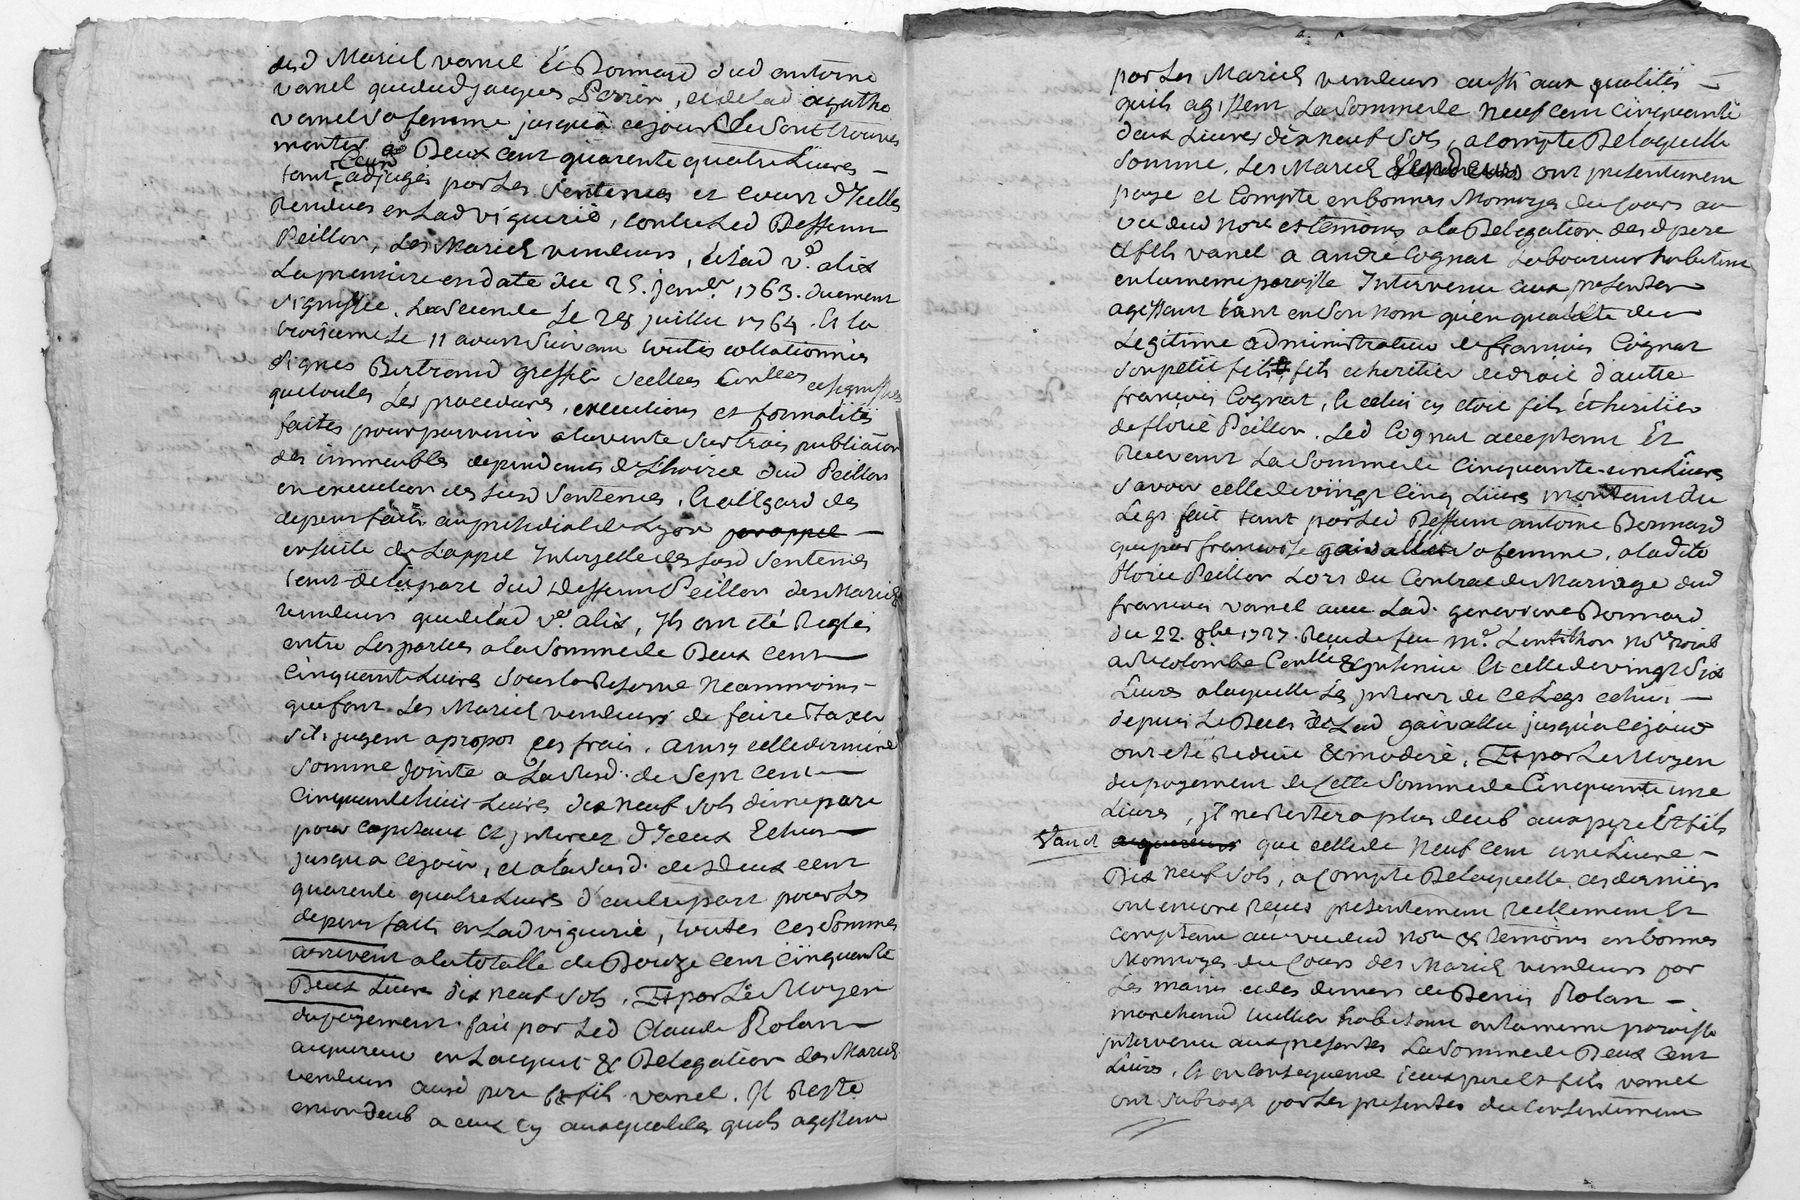 desd Mariel vanel Et Bonnard dud antoine
vanel quedud jacques Perrin, et de lad agathe
vanel sa femme jusqua cejour se sont trouves
monter a Deux cent quarente quatre Livres
tant adjugés par les Sentences et cours d'Icelles
Rendues en Lad viguerie, contre Led Deffunt
Peillon, Les Mariés vendeurs, et Lad ve. alix
La premiere en date du 25. janer. 1763. duement
signiffiée. La Seconde Le 28 juillet 1764. Et la
troisieme Le 11 aoust Suivant toutes collationnées
signés Bertrand greffier Scellees Conllees et signiffiées
que toutes Les procedures, executions et formalités
faites pour parvenir a la vente Sur trois publications
des immeubles dependants de L'hoirie dud Peillon
en execution des susd Sentences. Et a l'Egard des
depens faits au presidial de Lyon par appel
ensuite de L'appel Interjetté des susd Sentences
tant de la part dud deffunt Peillon des Mariés
vendeurs que de lad ve. alix, Ils ont été Reglés
entre Les parties a la Somme de Deux cent
Cinquante Livres Sous la Reserve Neanmoins
que font Les Mariés vendeurs de faire Taxer
s'ils jugent apropos ces frais. ainsy cette derniere
Somme Jointe a La Susd. de Sept cent
Cinquante huit Livres dix neuf Sols d'une part
pour Capitaux Et Interets d'Iceux Echus
jusqua cejour, et a la Susd. de Deux cent
quarente quatre Livres d'autre part pour Les
depens faits en Lad viguerie, toutes ces Sommes
arrivent a la totalle de Douze Cent Cinquante
Deux Livres dix neuf Sols. Et par Le Moyen
du payement fait par Led Claude Rolan
acquereur en Lacquit & Delegation des Mariés
vendeurs ausd pere & fils vanel. Il Reste
encor deub a ceux cy aux qualités quils agissent
par Les Mariés vendeurs aussi aux qualités
quils agissent La Somme de Neuf Cent Cinquante
deux Livres dix neuf Sols, a compte De laquelle
Somme, Les Mariés Vendeurs ont presentement
payé et Compté en bonnes Monnoyes du Cours au
vu dud Nore et temoins a la Delegation desd pere
& fils vanel a andré Cognat Laboureur habitant
en la meme paroisse Intervenu aux presentes
agissant tant en Son Nom qu'en qualité de
Legitime administrateur de francois Cognat
Son petit fils, fils et heritier de droit d'autre
francois Cognat, Et celui cy etoit fils et heritier
de florie Peillon. Led Cognat acceptant Et
Recevant La Somme de Cinquante une Livres
Savoir celle de vingt Cinq Livres montant du
Legs fait tant par Led Deffunt antoine Bonnard
que par francoise gairallet Sa femme, a ladite
florie Peillon Lors du Contrat de Mariage dud
francois vanel avec Lad. genevieve Bonnard
du 22. 8bre 1727. Recu de feu Me. Lentillion Nore Roial
a Ste Colombe Conllé & Insinué Et celle de vingt Six
Livres a laquelle Les Interets de ce Legs echus
depuis Le Deces de Lad gairallet jusqua cejour
ont été Reduits & moderé. Et par Le Moyen
du payement de Cette Somme de Cinquante une
Livres, Il ne Restera plus deub aux pere Et fils
vanel acquereurs que celle de Neuf Cent une Livre
Dix Neuf Sols, a Compte De laquelle ces derniers
ont encore Recus presentement Reellement Et
Comptant au vu dud Nore & temoins en bonnes
Monnoyes du Cours des Mariés vendeurs par
Les mains et des deniers de Denis Rolan
marchand tuillier habitant en la meme paroisse
Intervenu aux presentes La Somme de Deux Cent
Livres. Et en Consequence iceux pere Et fils vanel
ont Subrogé par Les presentes du Consentement